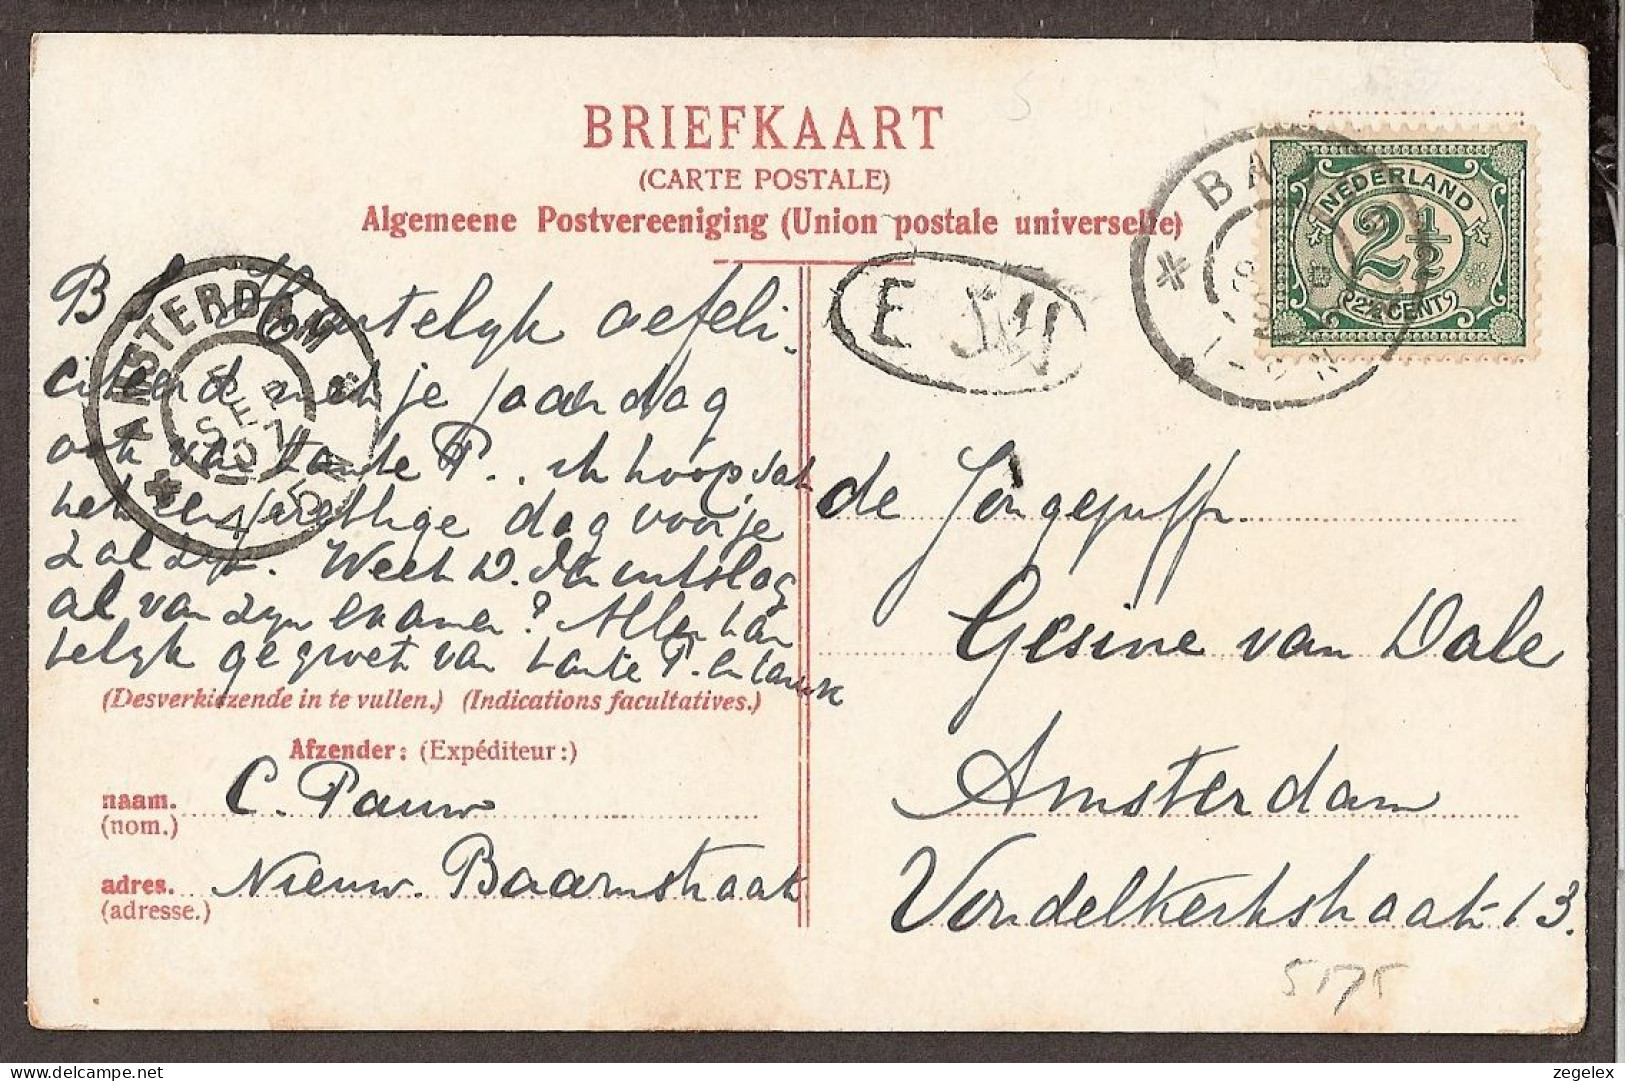 BRIEFKAART
(CARTE POSTALE)
Algemeene Postvereeniging (Union postale universelle)
NEDERLAND
2½
2½ CENT
BA
1-2N
AMSTERDAM
SEP
07
4-5N
B. L. Hartelyk gefeli-
citeerd met je jaardag
ook van tante P.. ik hoop dat
het een prettige dag voor je
zal zyn. Weet W. den uitslag
al van zyn examen? Allen har
telyk gegroet van tante P. en
(Desverkiezende in te vullen.) (Indications facultatives.)
Afzender: (Expéditeur:)
naam. C. Pauw
(nom.)
adres. Nieuw. Baarnstraat
(adresse.)
de Jongejuffr.
Gesine van Dale
Amsterdam
Vondelkerkstraat 13.
5175
zegelex